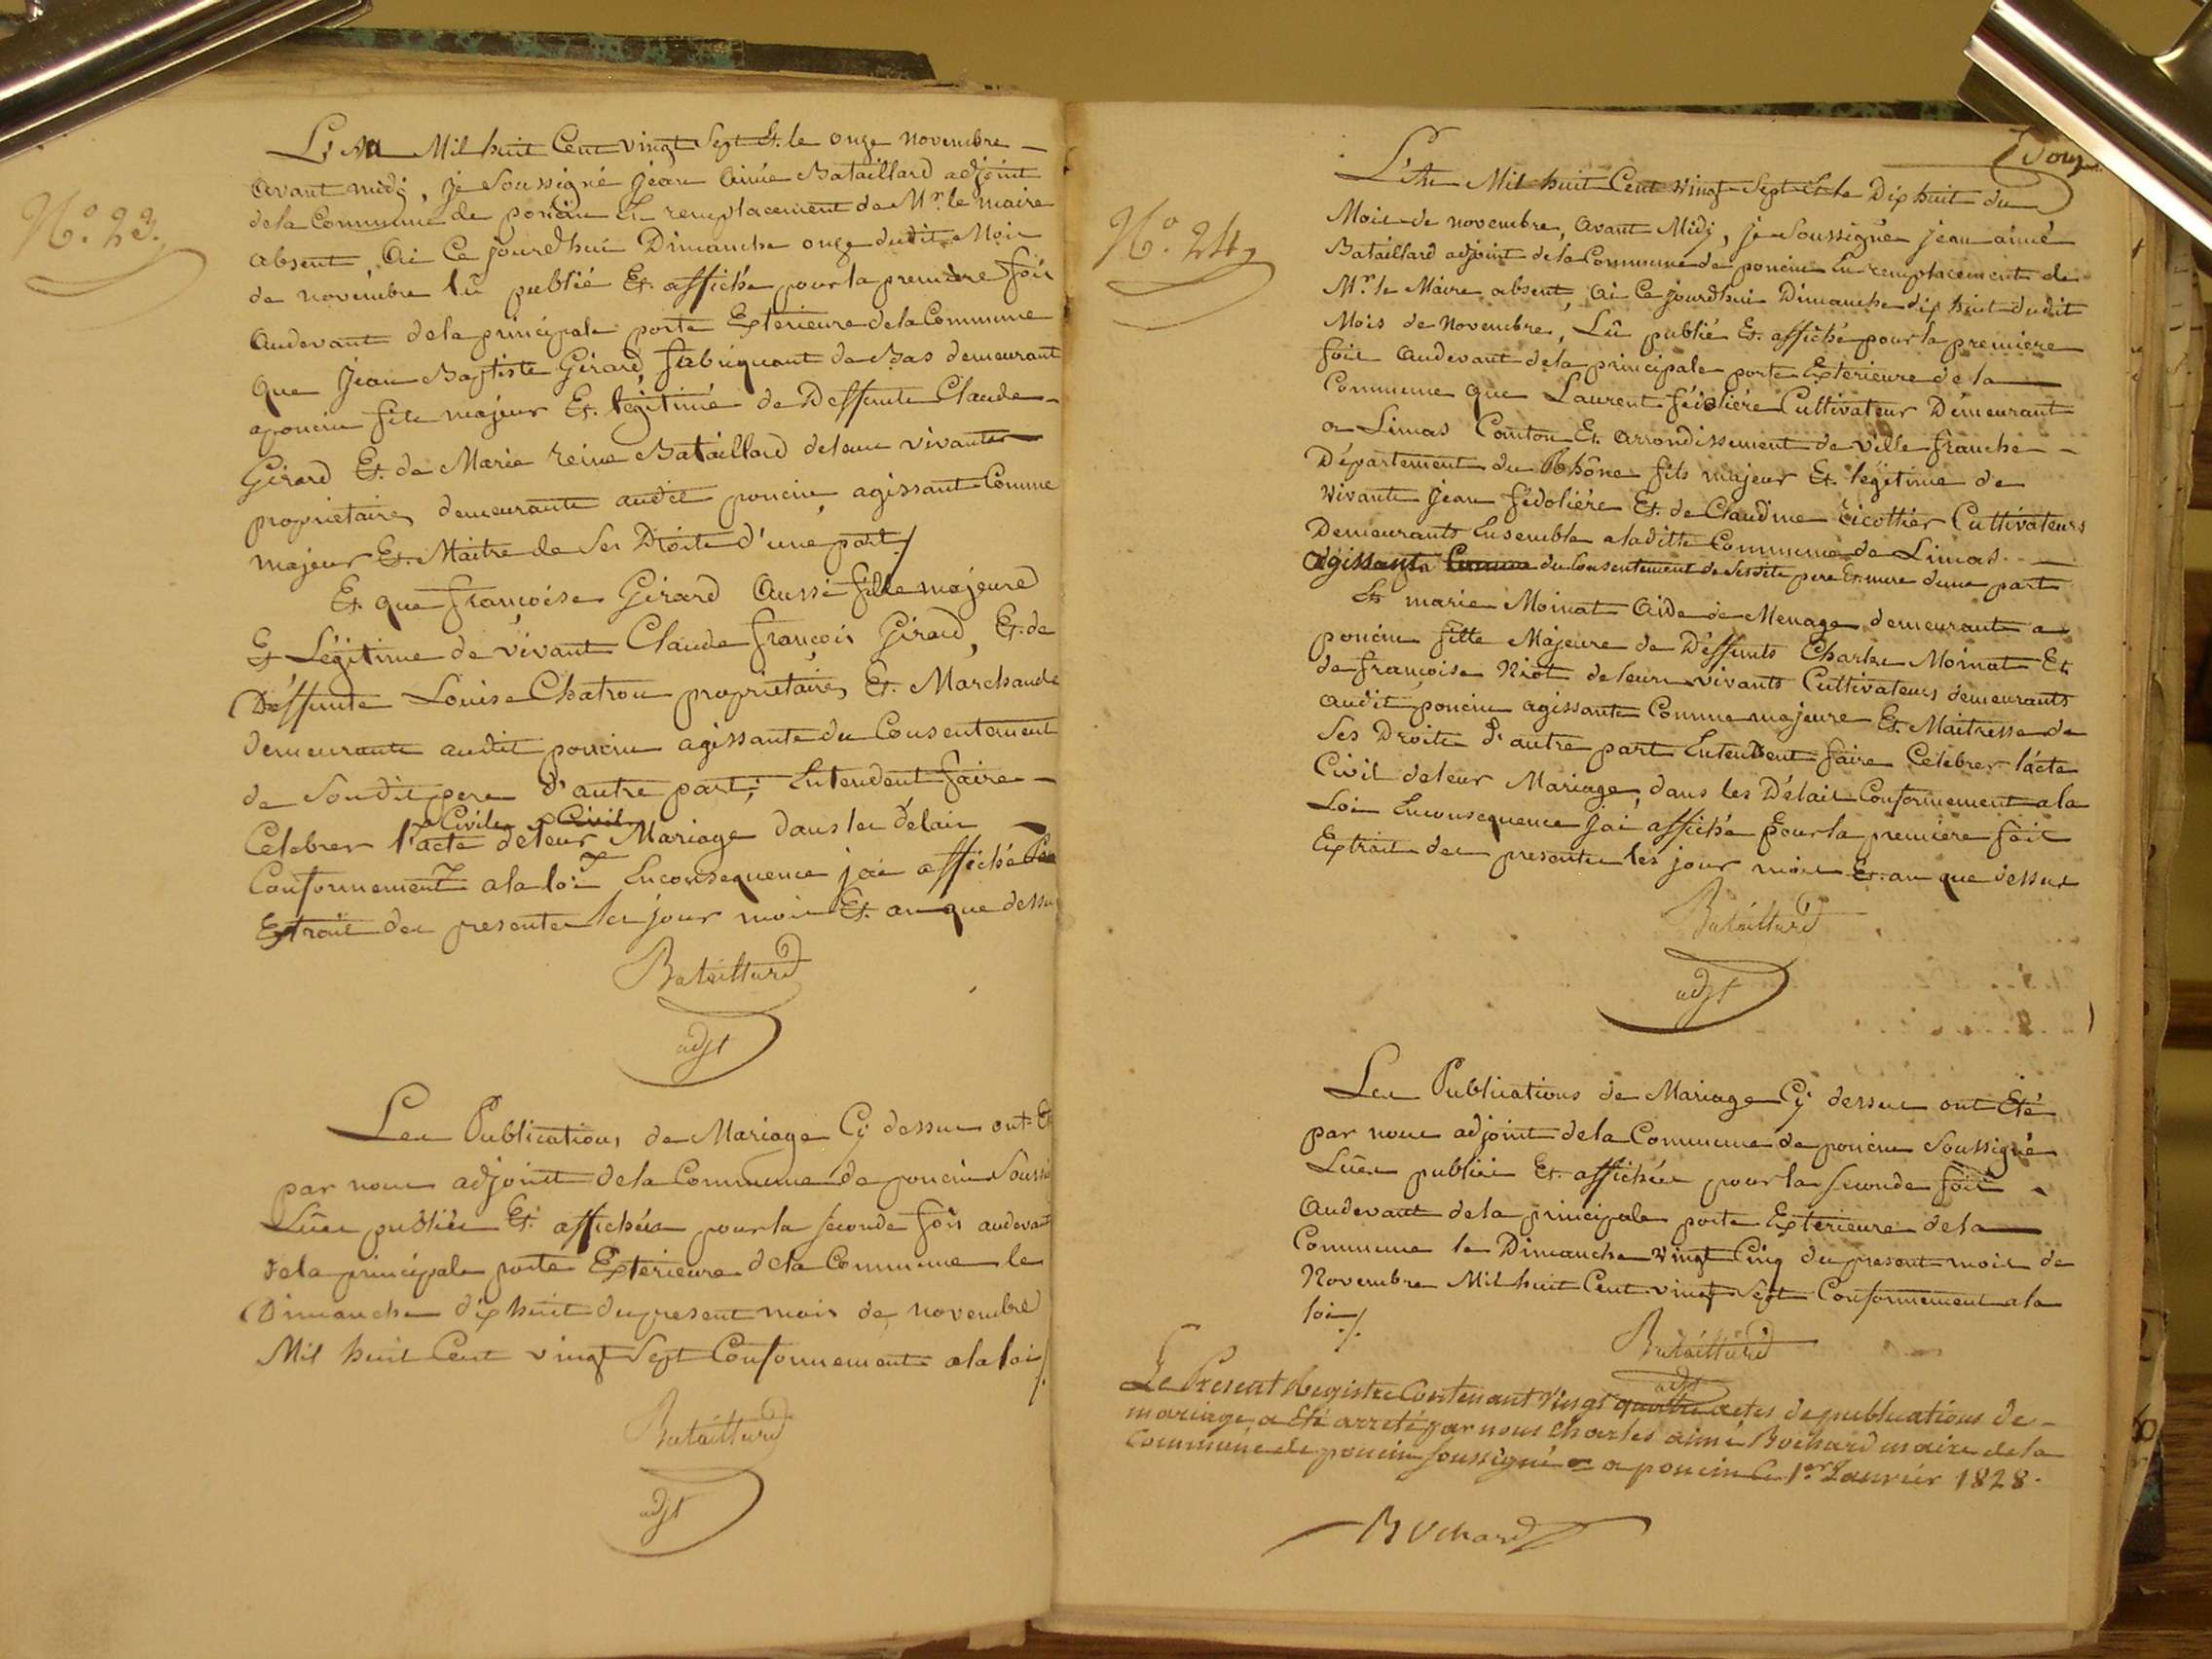 N.o 23.
L'An Mil huit Cent vingt Sept Et. le onze novembre
avant midj, je Soussigné jean aimé Bataillard adjoint
dela Commune de poncin En remplacement de Mr. le maire
absent, ai Ce jourdhui Dimanche onze dudit Mois
de novembre lû publié Et. affiché pour la première fois
audevant dela principale porte Exterieure dela Commune
que Jean Baptiste Girard fabriquant de Bas demeurant
aponcin fils majeur Et. légitimé de Deffunte Claude
Girard Et. de Marie reine Bataillard deleur vivante
proprietaires demeurante audit poncin agissant Comme
majeur Et. Maitre de Ses Droite d'une part/
Et que françoise Girard Aussi fille majeure
Et Légitime de vivant Claude françois Girard, Et. de
Deffunte Louise Chatron proprietaires Et. Marchande
demeurante audit poncin agissante du Consentement
de Soudit pere d'autre part; Entendent faire
Civile Civil
Celebrer l'acte deleur Mariage dans les délais
Conformement ala loi Enconsequence jai affiché
Extrait des presentes les jour mois Et. an que dessus
Bataillard
adjt
Les Publications de Mariage Cÿ dessus ont Et
par nous adjoint dela Commune de poncin Soussi
Lûes publiées Et. affichées pour la seconde fois audevant
dela principale porte Exterieure dela Commune le
Dimanche dix huit dupresent mois de novembre
Mil huit Cent vingt Sept Conformement ala loi/.
Bataillard
adjt
N.o 24
L'An Mil huit Cent vingt Sept Et le Dix huit du
Mois de novembre, avant Midj, je Soussigné jean aimé
Bataillard adjoint dela Commune de poncin En remplacement de
Mr. le Maire absent, ai Ce jourdhui Dimanche dix huit dudit
Mois de Novembre, Lû publié Et. affiché pour la premiere
fois audevant dela principale porte Exterieure dela
Commune que Laurent fédolière Cultivateur Demeurant
a Limas Canton Et. arrondissement de ville franche
Département du Rhône fils majeur Et. legitime de
vivante jean fédolière Et. de Claudine Cultivateurs
Demeurants Ensemble aladitte Commune de Limas
agissant Comme du Consentement de Sesdits pere Et mere d'une part
Et marie Moinat Aide de Menage demeurante a
poncin fille Majeure de Deffunts Charles Moinat Et.
de françoise Niot deleurs vivants Cultivateurs demeurants
audit poncin agissante Comme majeure Et. Maitresse de
Ses Droite d'autre part Entendent faire Celebrer l'acte
Civil deleur Mariage, dans les Délais Conformement ala
Loi Enconsequence jai affiché pour la premiere fois
Extrait des presentes les jour mois Et. an que dessus
Bataillard
adjt
Les Publications de Mariage Cÿ dessus ont Eté
par nous adjoint dela Commune de poncin Soussigné
Lûes publiées Et. affichées pour la seconde fois
audevant dela principale porte Exterieure dela
Commune le Dimanche vingt Cinq du present mois de
Novembre Mil huit Cent vingt Sept Conformement ala
loi ./.
Bataillard
adjt
Le Present Registre Contenant vingt quatre actes de publications de
mariage, a été arrêté par nous Charles aimé Bochard maire dela
Commune de poncin soussigné a poncin le 1er Janvier 1828.
Bochard